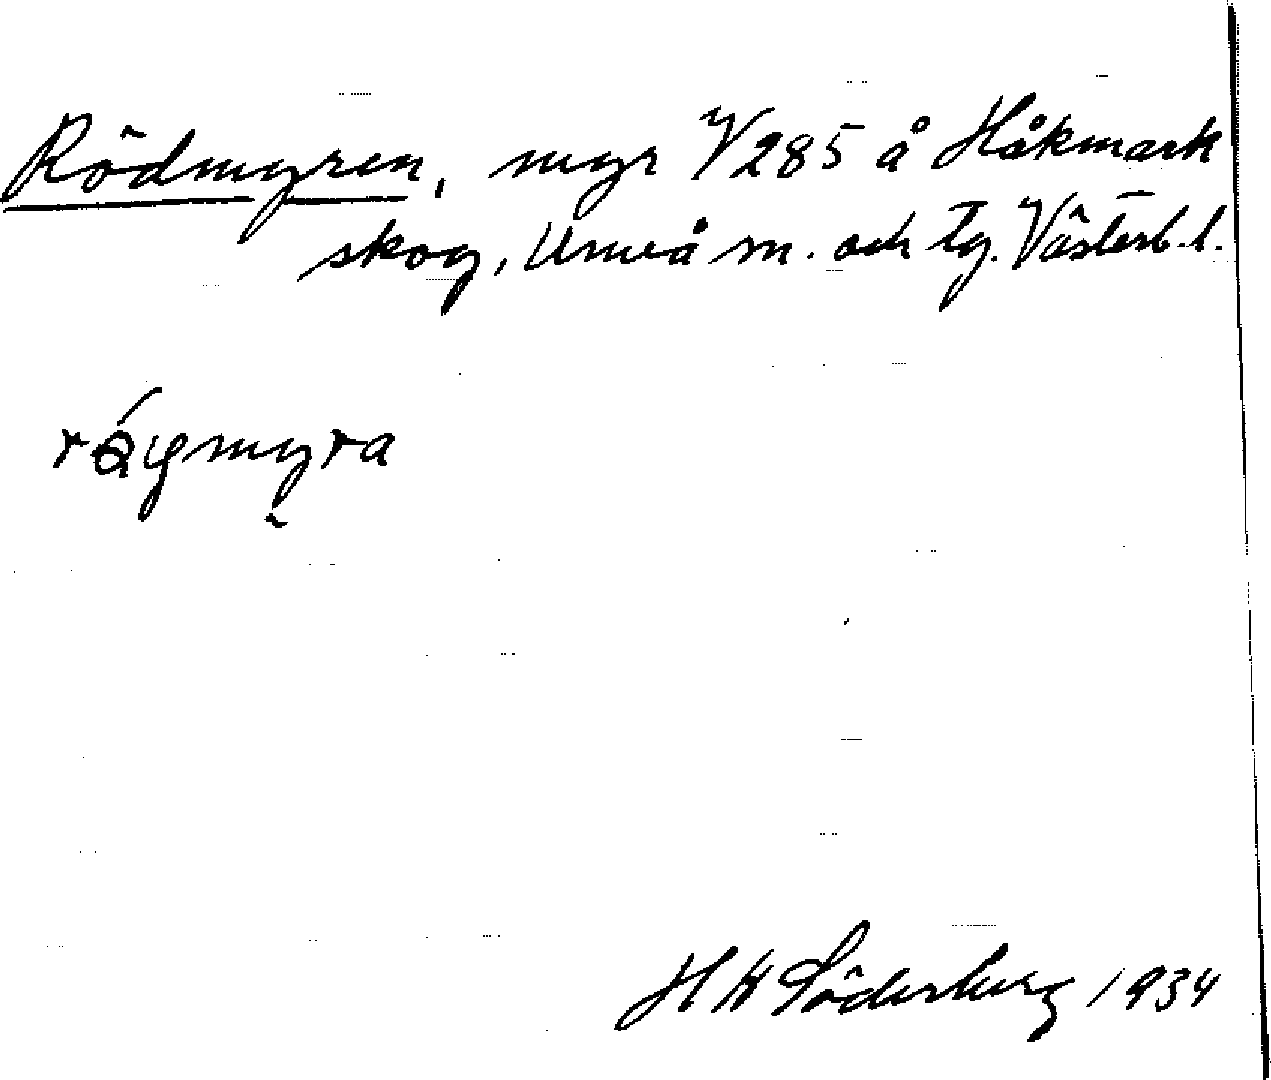 Rödmyren, myr V285 å Håkmark
skog, Umeå m. och tg. Västerb. l.
Söderberg 1934